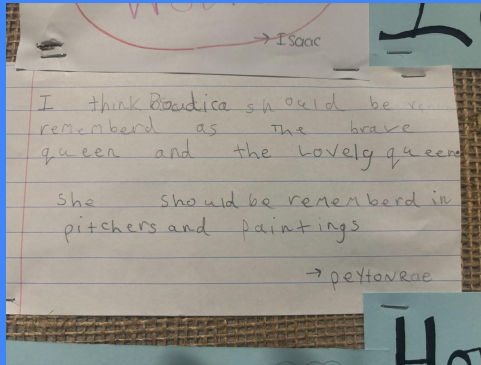 → Isaac
I think Boudica should be re
rememberd as The brave
queen and the Lovely queen
She should be rememberd in
pitchers and paintings
→ peytonRae
Ho